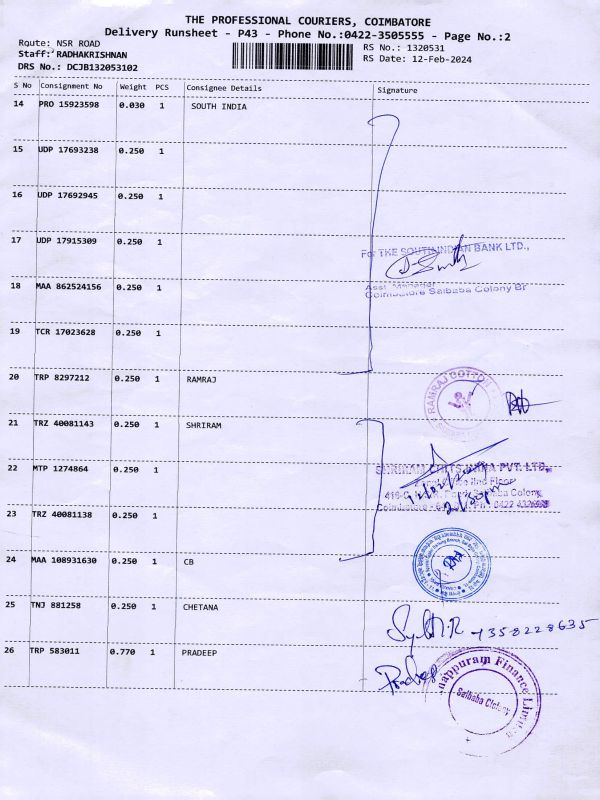 THE PROFESSIONAL COURIERS, COIMBATORE
Delivery Runsheet - P43 - Phone No.:0422-3505555 - Page No.:2
Route: NSR ROAD
RS No.: 1320531
Staff: RADHAKRISHNAN
RS Date: 12-Feb-2024
DRS No.: DCJB132053102
S No Consignment No Weight PCS Consignee Details Signature
14 PRO 15923598 0.030 1 SOUTH INDIA
15 UDP 17693238 0.250 1
16 UDP 17692945 0.250 1
17 UDP 17915309 0.250 1
For THE SOUTH INDIAN BANK LTD.,
18 MAA 862524156 0.250 1
Asst. Manager
Coimbatore Saibaba Colony Br
19 TCR 17023628 0.250 1
20 TRP 8297212 0.250 1 RAMRAJ
RAMRAJ COTTON
21 TRZ 40081143 0.250 1 SHRIRAM
22 MTP 1274864 0.250 1
SHRIRAM CHITS INDIA PVT. LTD.,
IInd Floor
Saibaba Colony,
Coimbatore
12/02/2024
23 TRZ 40081138 0.250 1
24 MAA 108931630 0.250 1 CB
25 TNJ 881258 0.250 1 CHETANA
7358228635
26 TRP 583011 0.770 1 PRADEEP
Pradeep
Finance Limited
Saibaba Colony